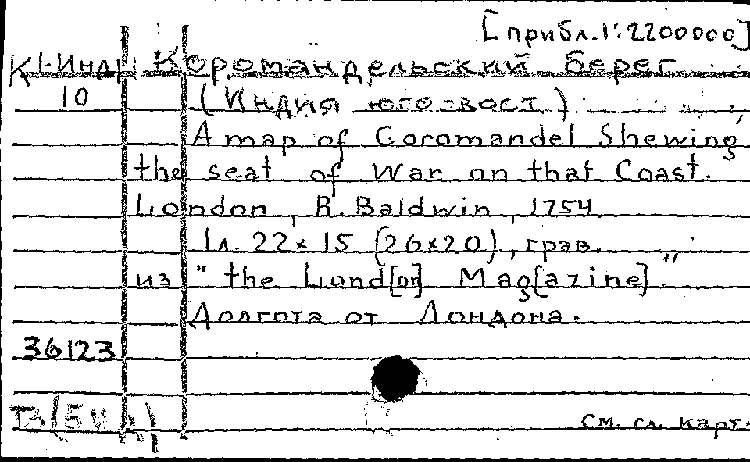 [прибл. 1:2200000]
К1-Инд Коромандельский берег
10 (Индия юго-вост)
A map of Coromandel Shewing
the seat of War on that Coast.
London, R. Baldwin, 1754
1л. 22×15 (26×20), грав.
из "the Lond[on] Mag[azine]"
Долгота от Лондона.
36123
см. сл. карт.